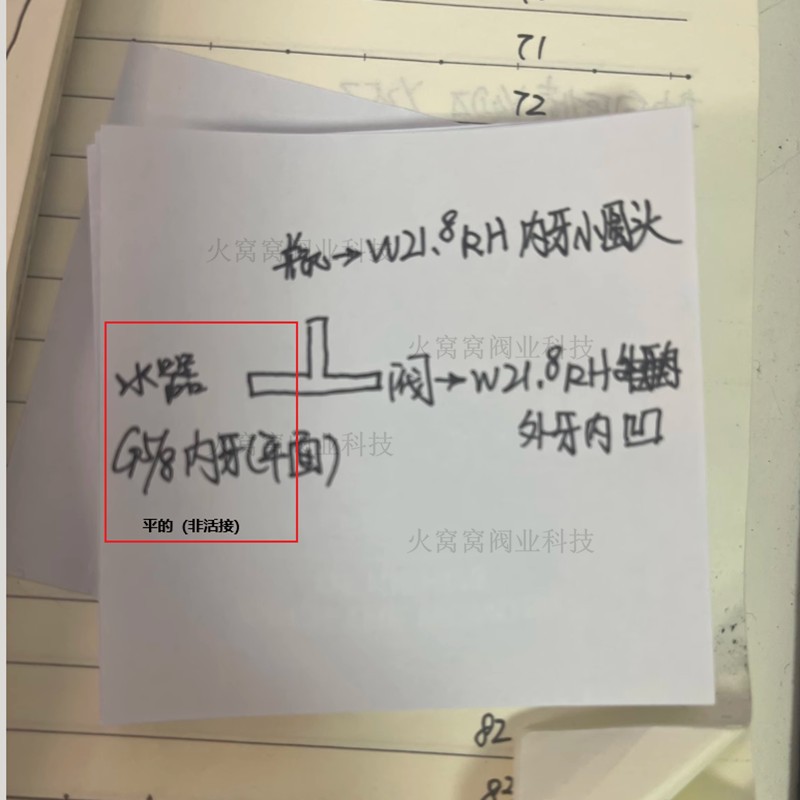 71
72
瓶→W21.8RH 内牙小圆头
火窝窝阀业科技
火窝窝阀业科技
水器
阀→W21.8RH
外牙内凹
G5/8内牙(平面)
火窝窝阀业科技
平的 (非活接)
火窝窝阀业科技
82